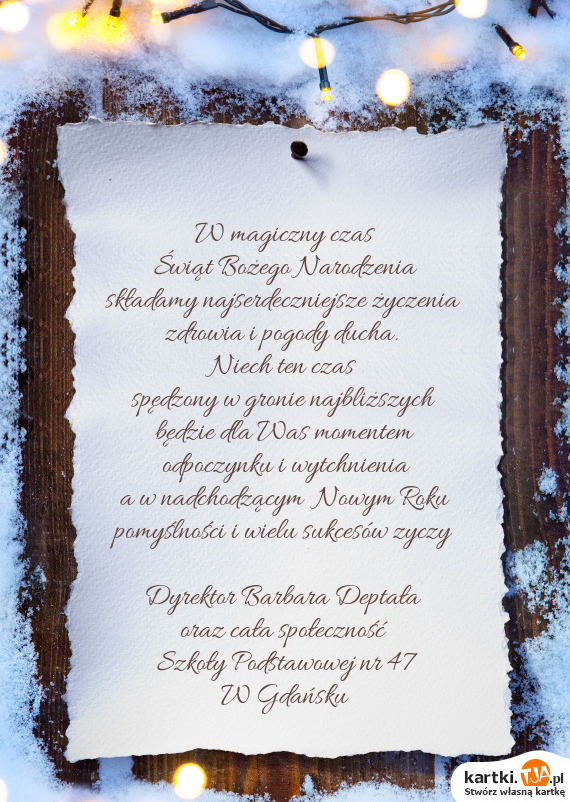 W magiczny czas
Świąt Bożego Narodzenia
składamy najserdeczniejsze życzenia
zdrowia i pogody ducha.
Niech ten czas
spędzony w gronie najbliższych
będzie dla Was momentem
odpoczynku i wytchnienia
a w nadchodzącym Nowym Roku
pomyślności i wielu sukcesów zyczy
Dyrektor Barbara Deptała
oraz cała społeczność
Szkoły Podstawowej nr 47
W Gdańsku
kartki.TJA.pl
Stwórz własną kartkę